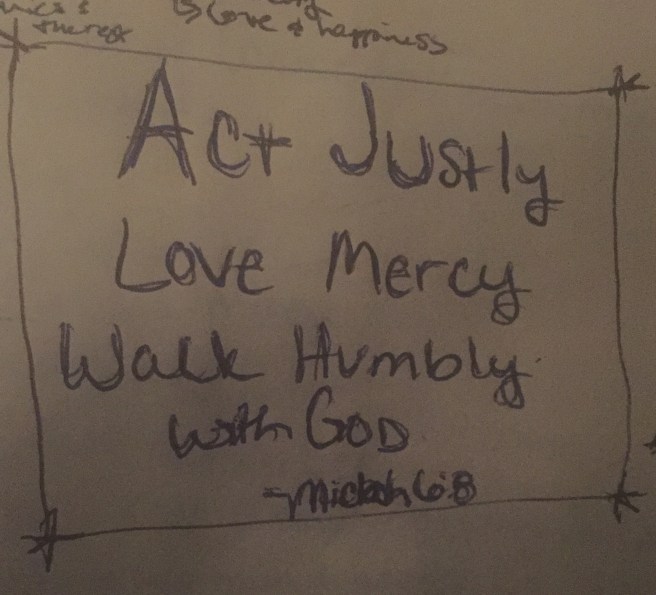 Love & happiness
Act Justly
Love Mercy
Walk Humbly
with GOD
-Micah 6:8